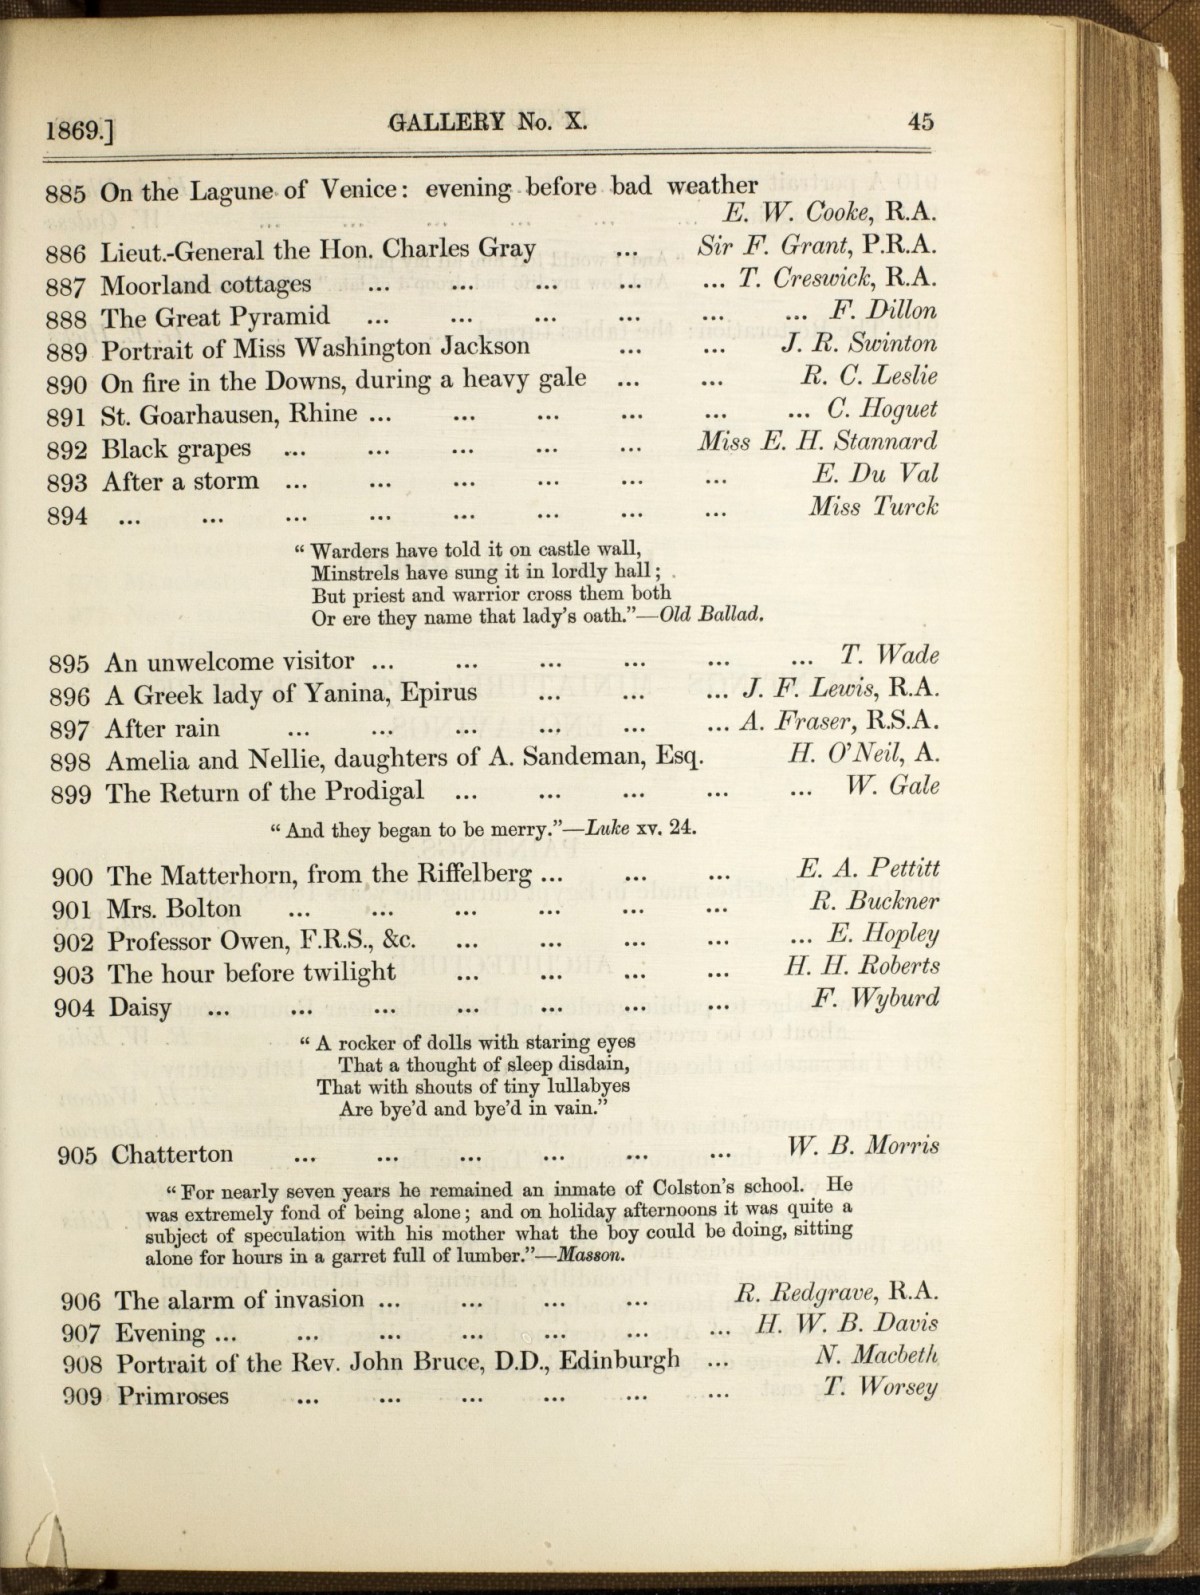 1869.] GALLERY No. X. 45
885 On the Lagune of Venice: evening before bad weather
E. W. Cooke, R.A.
886 Lieut.-General the Hon. Charles Gray ... Sir F. Grant, P.R.A.
887 Moorland cottages ... ... ... ... ... T. Creswick, R.A.
888 The Great Pyramid ... ... ... ... ... ... F. Dillon
889 Portrait of Miss Washington Jackson ... ... J. R. Swinton
890 On fire in the Downs, during a heavy gale ... ... R. C. Leslie
891 St. Goarhausen, Rhine ... ... ... ... ... ... C. Hoguet
892 Black grapes ... ... ... ... ... Miss E. H. Stannard
893 After a storm ... ... ... ... ... ... E. Du Val
894 ... ... ... ... ... ... ... ... Miss Turck
“ Warders have told it on castle wall,
Minstrels have sung it in lordly hall;
But priest and warrior cross them both
Or ere they name that lady’s oath.”—Old Ballad.
895 An unwelcome visitor ... ... ... ... ... ... T. Wade
896 A Greek lady of Yanina, Epirus ... ... ... J. F. Lewis, R.A.
897 After rain ... ... ... ... ... ... A. Fraser, R.S.A.
898 Amelia and Nellie, daughters of A. Sandeman, Esq. H. O’Neil, A.
899 The Return of the Prodigal ... ... ... ... ... W. Gale
“ And they began to be merry.”—Luke xv. 24.
900 The Matterhorn, from the Riffelberg ... ... ... E. A. Pettitt
901 Mrs. Bolton ... ... ... ... ... ... R. Buckner
902 Professor Owen, F.R.S., &c. ... ... ... ... ... E. Hopley
903 The hour before twilight ... ... ... ... H. H. Roberts
904 Daisy ... ... ... ... ... ... ... F. Wyburd
“ A rocker of dolls with staring eyes
That a thought of sleep disdain,
That with shouts of tiny lullabyes
Are bye’d and bye’d in vain.”
905 Chatterton ... ... ... ... ... ... W. B. Morris
“ For nearly seven years he remained an inmate of Colston’s school. He
was extremely fond of being alone; and on holiday afternoons it was quite a
subject of speculation with his mother what the boy could be doing, sitting
alone for hours in a garret full of lumber.”—Masson.
906 The alarm of invasion ... ... ... ... R. Redgrave, R.A.
907 Evening ... ... ... ... ... ... ... H. W. B. Davis
908 Portrait of the Rev. John Bruce, D.D., Edinburgh ... N. Macbeth
909 Primroses ... ... ... ... ... ... T. Worsey